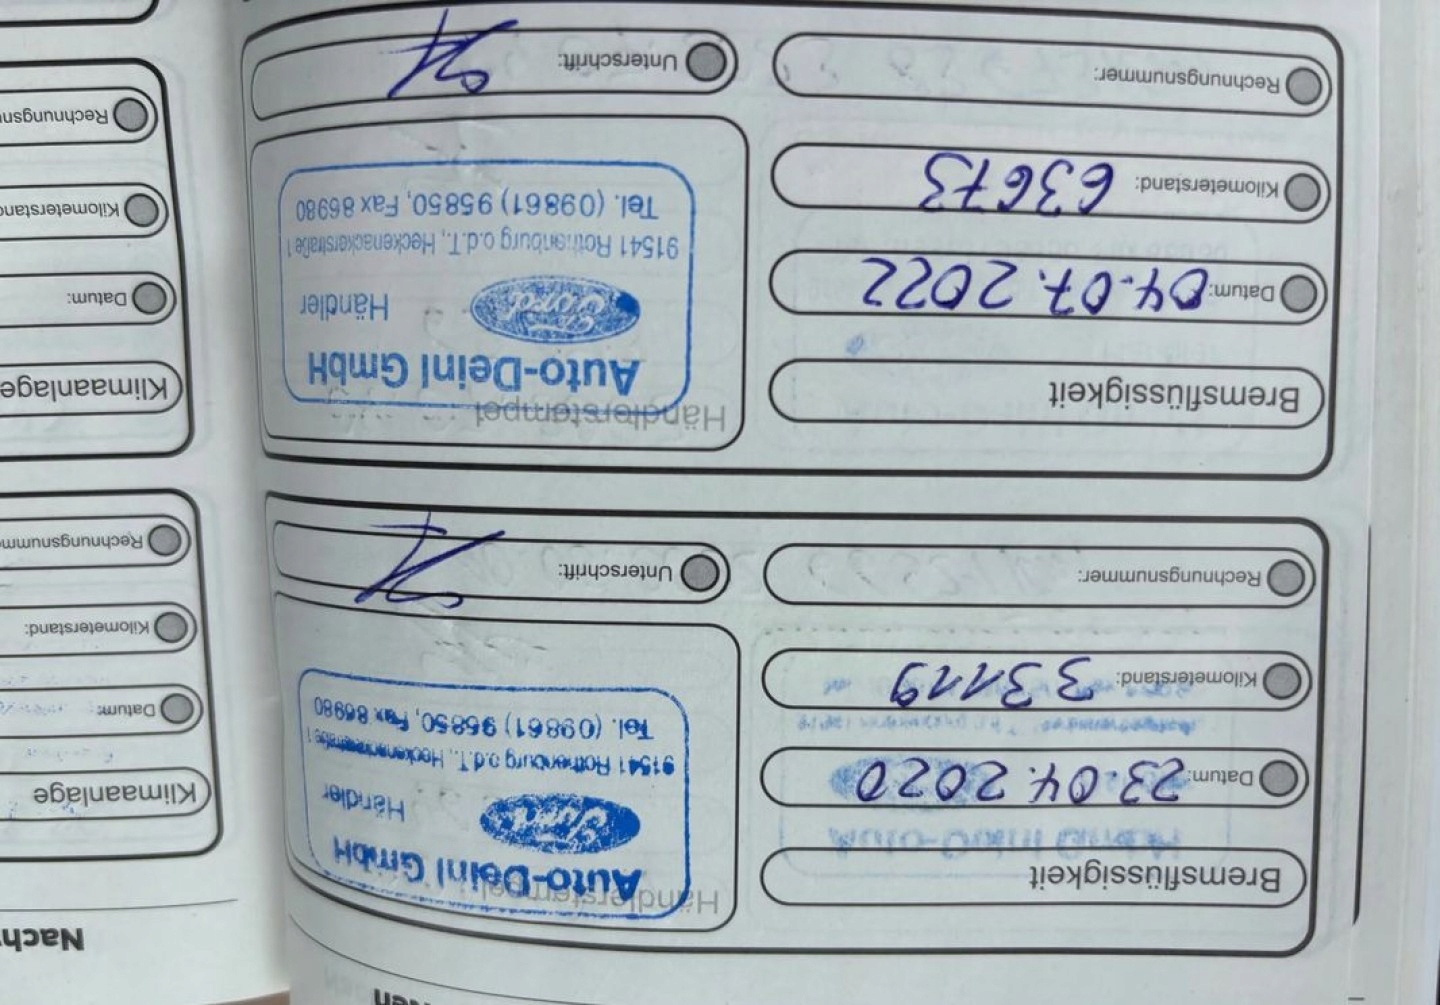 Nach
Klimaanlage
Datum:
Kilometerstand:
Klimaanlage
Datum:
Bremsflüssigkeit
Datum: 23.04.2020
Kilometerstand: 33119
Rechnungsnummer:
Händlerstempel
Auto-Deinl GmbH
Ford Händler
91541 Rothenburg o.d.T., Heckenackerstraße 1
Tel. (09861) 95850, Fax 86980
Unterschrift:
Bremsflüssigkeit
Datum: 04.07.2022
Kilometerstand: 63673
Rechnungsnummer:
Händlerstempel
Auto-Deinl GmbH
Ford Händler
91541 Rothenburg o.d.T., Heckenackerstraße 1
Tel. (09861) 95850, Fax 86980
Unterschrift: